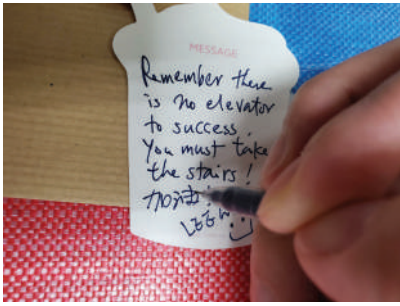 MESSAGE
Remember there
is no elevator
to success.
You must take
the stairs!
加油!